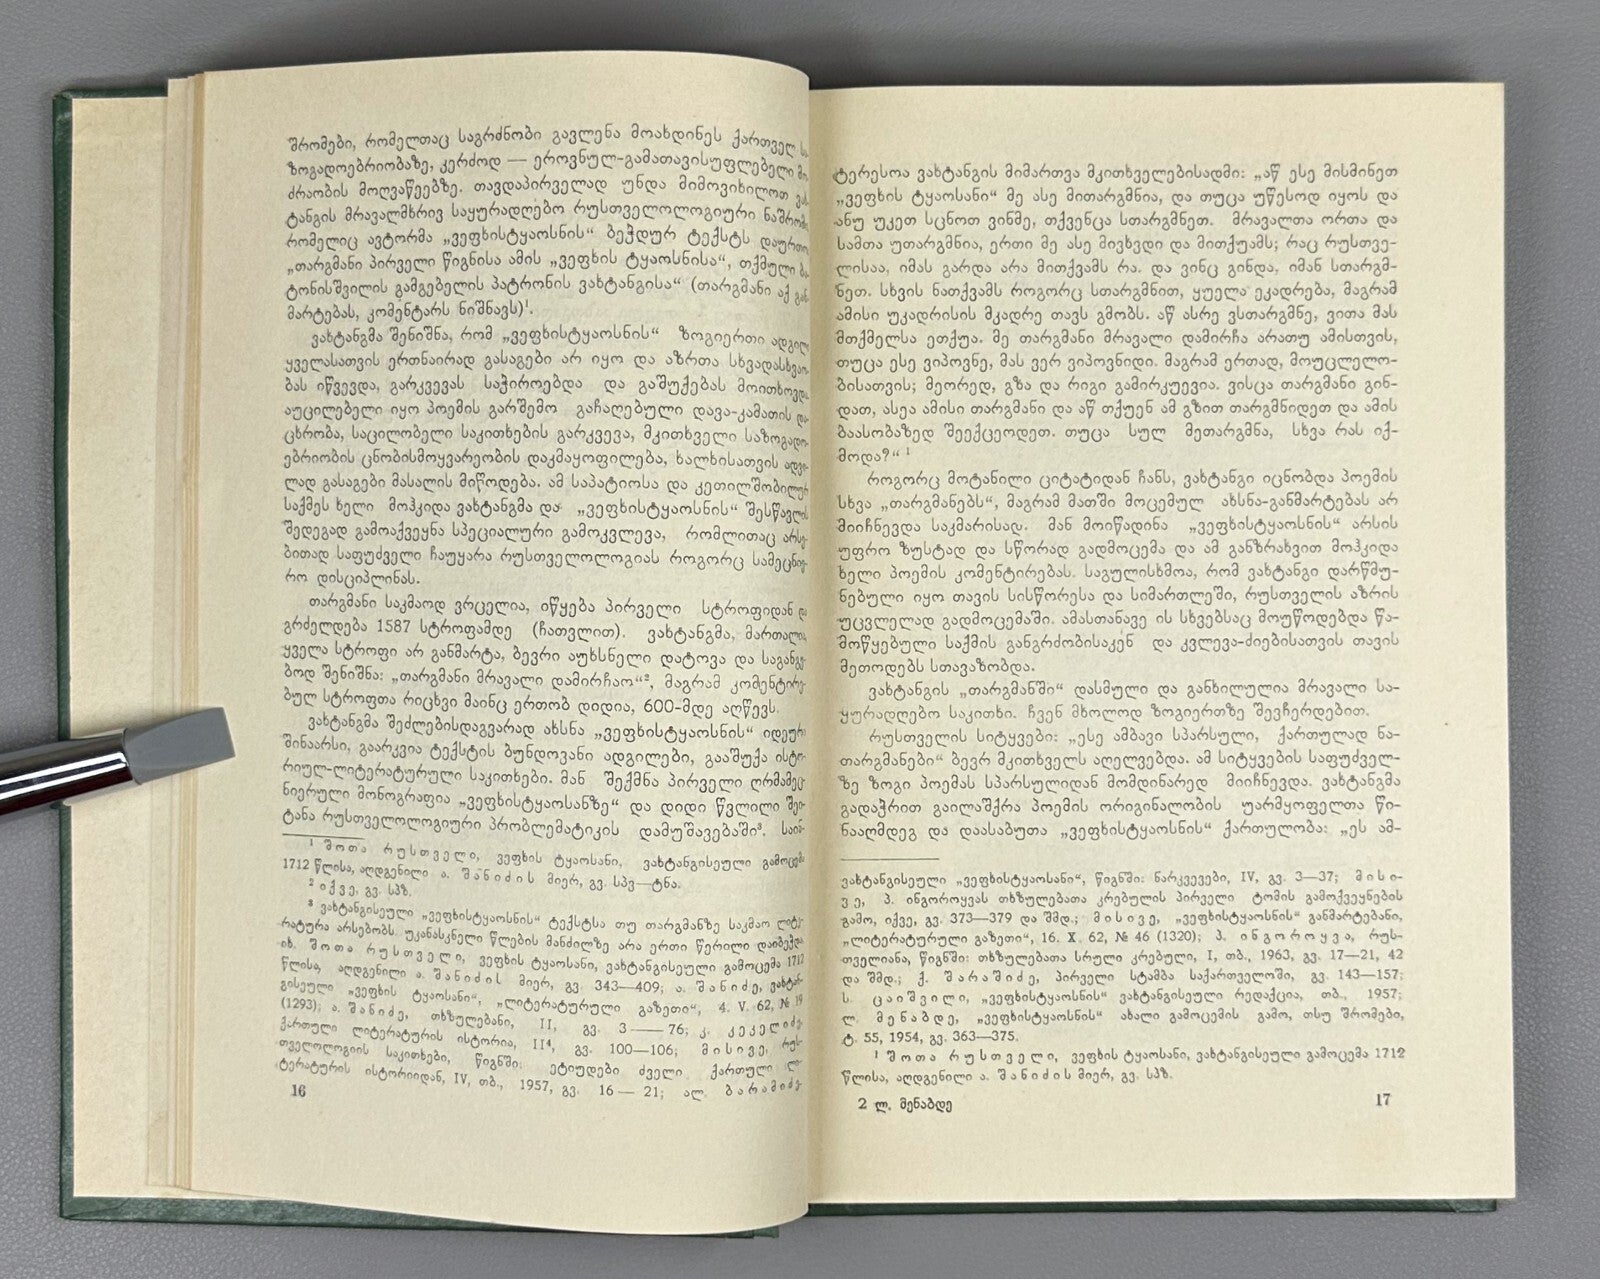 შრომები, რომელთაც საგრძნობი გავლენა მოახდინეს ქართველ
ზოგადოებრიობაზე, კერძოდ — ეროვნულ-გამათავისუფლებელი
ძრაობის მოღვაწეებზე. თავდაპირველად უნდა მიმოვიხილოთ
ტანგის მრავალმხრივ საყურადღებო რუსთველოლოგიური ნაშრომი
რომელიც ავტორმა „ვეფხისტყაოსნის“ ბეჭდურ ტექსტს დაურთო
„თარგმანი პირველი წიგნისა ამის „ვეფხის ტყაოსნისა“, თქმული
ტონისშვილის გამგებელის პატრონის ვახტანგისა“ (თარგმანი აქ
მარტებას, კომენტარს ნიშნავს)¹.
ვახტანგმა შენიშნა, რომ „ვეფხისტყაოსნის“ ზოგიერთი ადგილი
ყველასათვის ერთნაირად გასაგები არ იყო და აზრთა სხვადასხვაო-
ბას იწვევდა, გარკვევას საჭიროებდა და გაშუქებას მოითხოვდა
აუცილებელი იყო პოემის გარშემო გაჩაღებული დავა-კამათის და-
ცხრობა, საცილობელი საკითხების გარკვევა, მკითხველი საზოგადო-
ებრიობის ცნობისმოყვარეობის დაკმაყოფილება, ხალხისათვის ადვი-
ლად გასაგები მასალის მიწოდება. ამ საპატიოსა და კეთილშობილურ
საქმეს ხელი მოჰკიდა ვახტანგმა და „ვეფხისტყაოსნის“ შესწავლის
შედეგად გამოაქვეყნა სპეციალური გამოკვლევა, რომლითაც არსე-
ბითად საფუძველი ჩაუყარა რუსთველოლოგიას როგორც სამეცნიე-
რო დისციპლინას.
თარგმანი საკმაოდ ვრცელია, იწყება პირველი სტროფიდან და
გრძელდება 1587 სტროფამდე (ჩათვლით). ვახტანგმა, მართალია,
ყველა სტროფი არ განმარტა, ბევრი აუხსნელი დატოვა და საგანგე-
ბოდ შენიშნა: „თარგმანი მრავალი დამირჩაო“², მაგრამ კომენტირე-
ბულ სტროფთა რიცხვი მაინც ერთობ დიდია, 600-მდე აღწევს.
ვახტანგმა შეძლებისდაგვარად ახსნა „ვეფხისტყაოსნის“ იდეური
შინაარსი, გაარკვია ტექსტის ბუნდოვანი ადგილები, გააშუქა ისტო-
რიულ-ლიტერატურული საკითხები. მან შექმნა პირველი ღრმამეც-
ნიერული მონოგრაფია „ვეფხისტყაოსანზე“ და დიდი წვლილი შეი-
ტანა რუსთველოლოგიური პრობლემატიკის დამუშავებაში³. საინ-
¹ შოთა რუსთველი, ვეფხის ტყაოსანი, ვახტანგისეული გამოცემა
1712 წლისა, აღდგენილი ა. შანიძის მიერ, გვ. სპვ—ტნა.
² იქვე, გვ. სპზ.
³ ვახტანგისეული „ვეფხისტყაოსნის“ ტექსტსა თუ თარგმანზე საკმაო ლიტე-
რატურა არსებობს. უკანასკნელი წლების მანძილზე არა ერთი წერილი დაიბეჭდა.
იხ. შოთა რუსთველი, ვეფხის ტყაოსანი, ვახტანგისეული გამოცემა 1712
წლისა, აღდგენილი ა. შანიძის მიერ, გვ. 343—409; ა. შანიძე, ვახტან-
გისეული „ვეფხის ტყაოსანი“, „ლიტერატურული გაზეთი“, 4. V. 62, № 19
(1293); ა. შანიძე, თხზულებანი, II, გვ. 3 — 76; კ. კეკელიძე,
ქართული ლიტერატურის ისტორია, II⁴, გვ. 100—106; მისივე, რუს-
თველოლოგიის საკითხები, წიგნში: ეტიუდები ძველი ქართული ლი-
ტერატურის ისტორიიდან, IV, თბ., 1957, გვ. 16 — 21; ალ. ბარამიძე,
16
ტერესოა ვახტანგის მიმართვა მკითხველებისადმი: „აწ ესე მისმინეთ
„ვეფხის ტყაოსანი“ მე ასე მითარგმნია, და თუცა უწესოდ იყოს და
ანუ უკეთ სცნოთ ვინმე, თქვენცა სთარგმნეთ. მრავალთა ორთა და
სამთა უთარგმნია, ერთი მე ასე მივხვდი და მითქუამს; რაც რუსთვე-
ლისაა, იმას გარდა არა მითქვამს რა. და ვინც გინდა, იმან სთარგმ-
ნეთ. სხვის ნათქვამს როგორც სთარგმნით, ყუელა ეკადრება, მაგრამ
ამისი უკადრისის მკადრე თავს გმობს. აწ ასრე ვსთარგმნე, ვითა მას
მთქმელსა ეთქუა. მე თარგმანი მრავალი დამირჩა არათუ ამისთვის,
თუცა ესე ვიპოვნე, მას ვერ ვიპოვნიდი. მაგრამ ერთად, მოუცლელო-
ბისათვის; მეორედ, გზა და რიგი გამირკუევია. ვისცა თარგმანი გინ-
დათ, ასეა ამისი თარგმანი და აწ თქუენ ამ გზით თარგმნიდეთ და ამის
ბაასობაზედ შეექცეოდეთ. თუცა სულ მეთარგმნა, სხვა რას იქ-
მოდა?“ ¹
როგორც მოტანილი ციტატიდან ჩანს, ვახტანგი იცნობდა პოემის
სხვა „თარგმანებს“, მაგრამ მათში მოცემულ ახსნა-განმარტებას არ
მიიჩნევდა საკმარისად. მან მოიწადინა „ვეფხისტყაოსნის“ არსის
უფრო ზუსტად და სწორად გადმოცემა და ამ განზრახვით მოჰკიდა
ხელი პოემის კომენტირებას. საგულისხმოა, რომ ვახტანგი დარწმუ-
ნებული იყო თავის სისწორესა და სიმართლეში, რუსთველის აზრის
უცვლელად გადმოცემაში. ამასთანავე ის სხვებსაც მოუწოდებდა წა-
მოწყებული საქმის განგრძობისაკენ და კვლევა-ძიებისათვის თავის
მეთოდებს სთავაზობდა.
ვახტანგის „თარგმანში“ დასმული და განხილულია მრავალი სა-
ყურადღებო საკითხი. ჩვენ მხოლოდ ზოგიერთზე შევჩერდებით.
რუსთველის სიტყვები: „ესე ამბავი სპარსული, ქართულად ნა-
თარგმანები“ ბევრ მკითხველს აღელვებდა. ამ სიტყვების საფუძველ-
ზე ზოგი პოემას სპარსულიდან მომდინარედ მიიჩნევდა. ვახტანგმა
გადაჭრით გაილაშქრა პოემის ორიგინალობის უარმყოფელთა წი-
ნააღმდეგ და დაასაბუთა „ვეფხისტყაოსნის“ ქართულობა: „ეს ამ-
ვახტანგისეული „ვეფხისტყაოსანი“, წიგნში: ნარკვევები, IV, გვ. 3—37; მისი-
ვე, პ. ინგოროყვას თხზულებათა კრებულის პირველი ტომის გამოქვეყნების
გამო, იქვე, გვ. 373—379 და შმდ.; მისივე, „ვეფხისტყაოსნის“ განმარტებანი,
„ლიტერატურული გაზეთი“, 16. X. 62, № 46 (1320); პ. ინგოროყვა, რუს-
თველიანა, წიგნში: თხზულებათა სრული კრებული, I, თბ., 1963, გვ. 17—21, 42
და შმდ.; ქ. შარაშიძე, პირველი სტამბა საქართველოში, გვ. 143—157;
ს. ცაიშვილი, „ვეფხისტყაოსნის“ ვახტანგისეული რედაქცია, თბ., 1957;
ლ. მენაბდე, „ვეფხისტყაოსნის“ ახალი გამოცემის გამო, თსუ შრომები,
ტ. 55, 1954, გვ. 363—375.
¹ შოთა რუსთველი, ვეფხის ტყაოსანი, ვახტანგისეული გამოცემა 1712
წლისა, აღდგენილი ა. შანიძის მიერ, გვ. სპზ.
2 ლ. მენაბდე
17